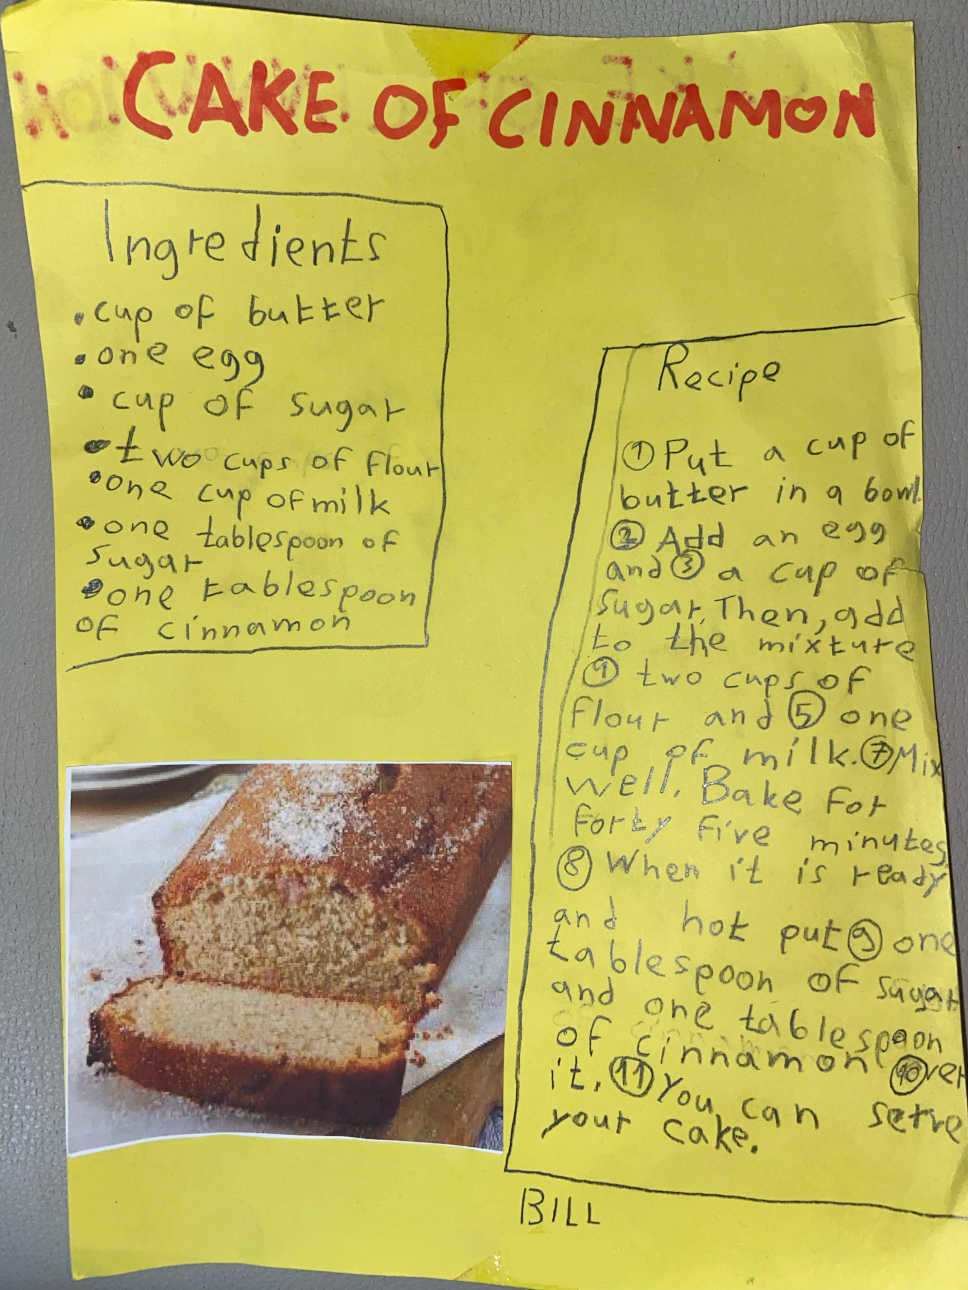 CAKE OF CINNAMON
Ingredients
• cup of butter
• one egg
• cup of sugar
• two cups of flour
• one cup of milk
• one tablespoon of
sugar
• one tablespoon
of cinnamon
Recipe
① Put a cup of
butter in a bowl.
② Add an egg
and ③ a cup of
sugar. Then, add
to the mixture
④ two cups of
flour and ⑤ one
cup of milk. ⑦ Mix
well. Bake for
forty five minutes
⑧ When it is ready
and hot put ⑨ one
tablespoon of sugar
and one tablespoon
of cinnamon ⑩ver
it. ⑪ You can serve
your cake.
BILL